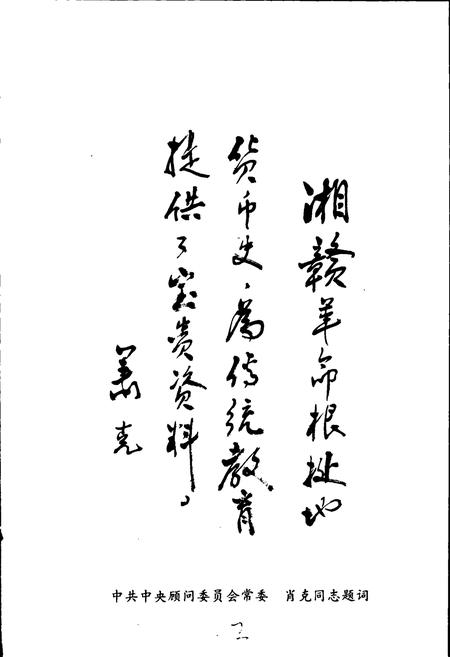 湘赣革命根据地
货币史，为传统教育
提供了宝贵资料。
萧克
中共中央顾问委员会常委　肖克同志题词